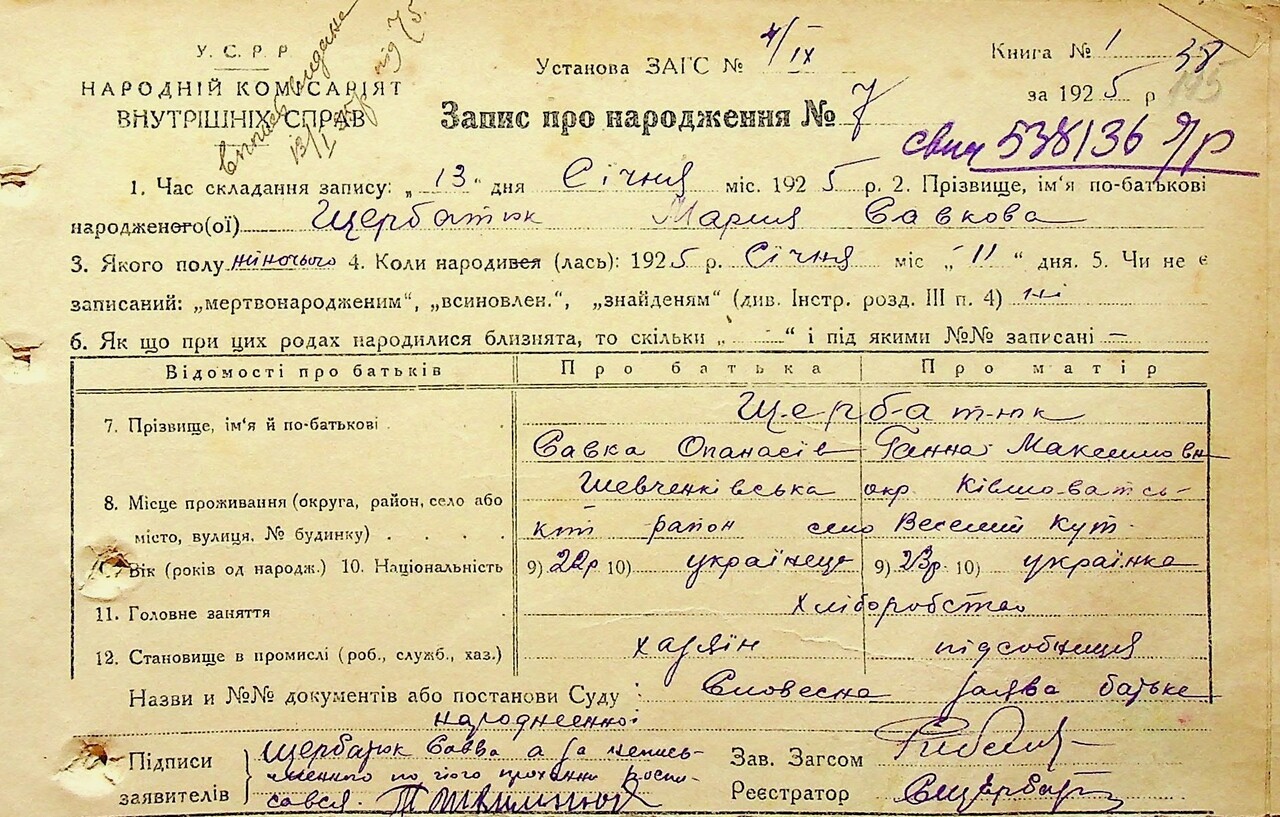 У. С. Р. Р
НАРОДНІЙ КОМІСАРІЯТ
ВНУТРІШНІХ СПРАВ
видане
13/I 35р під 75.
Установа ЗАГС № 4/IX
Книга № 1 38
за 1925 р 115
Запис про народження № 7
свид 538136
1. Час складання запису: „13“ дня Січня міс. 1925 р. 2. Прізвище, ім'я по-батькові
народженого(ої) Щербатюк Мария Савкова
3. Якого полу жіночого 4. Коли народився (лась): 1925 р. Січня міс „11“ дня. 5. Чи не є
записаний: „мертвонародженим“, „всиновлен.“, „знайденям“ (див. Інстр. розд. III п. 4) ні
6. Як що при цих родах народилися близнята, то скільки „ “ і під якими №№ записані —
Відомості про батьків Про батька Про матір
Щербатюк
7. Прізвище, ім'я й по-батькові
Савка Опанасів Ганна Максимовн
Шевченківська окр Ківшоватсь-
8. Місце проживання (округа, район, село або
місто, вулиця, № будинку) кий район село Веселий Кут
9. Вік (років од народж.) 10. Національність 9) 22р 10) українець 9) 23р. 10) українка
11. Головне заняття Хліборобство
12. Становище в промислі (роб., служб., хаз.) хазяїн підсобниця
Назви и №№ документів або постанови Суду : Словесна заява батька
народженної
Підписи
заявителів
Щербатюк Савва а за непись-
менного по його проханню роспи-
сався.
Зав. Загсом
Реєстратор